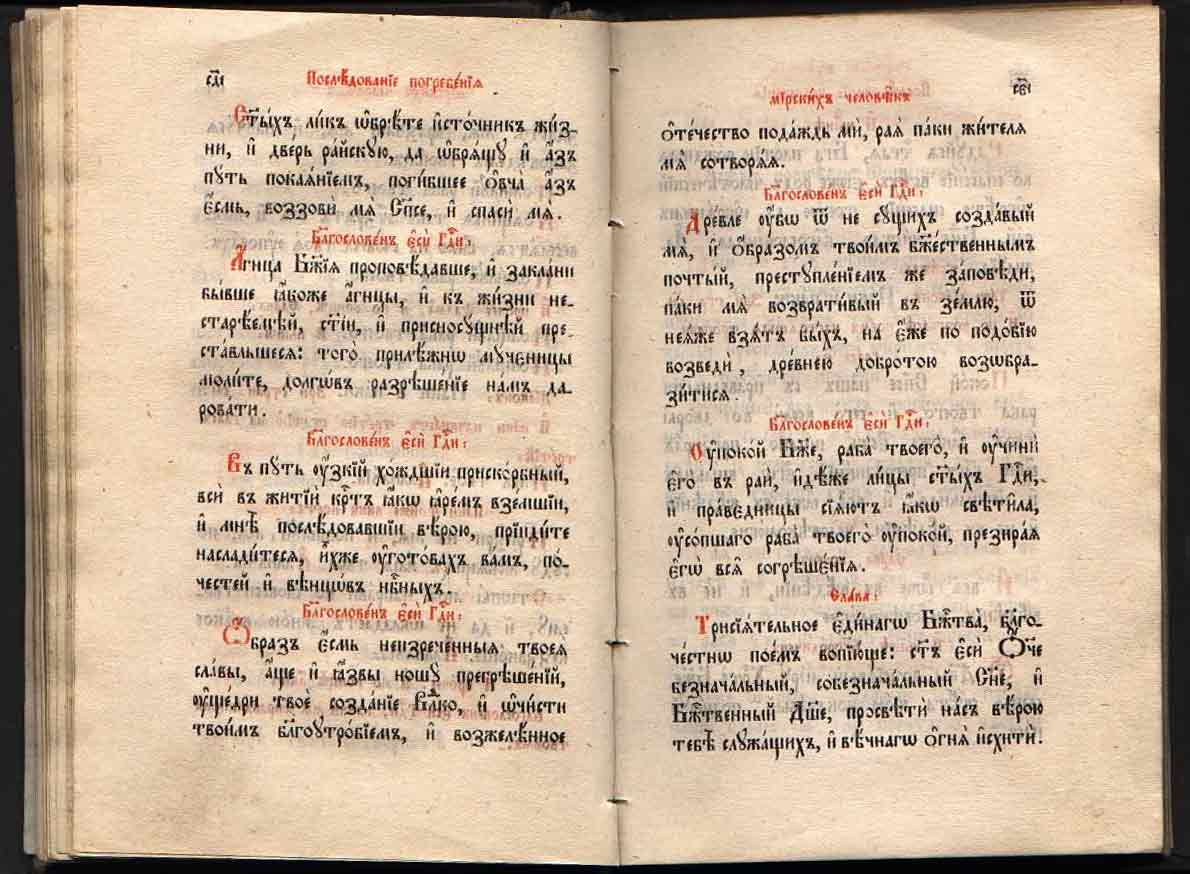 сд҃і
Послѣ́дованіе погребе́нія
С҃ты́хъ ли́къ ѡ҆брѣ́те и҆сто́чникъ жи́з-
ни, и҆ две́рь ра́йскую, да ѡ҆брѧ́щу и҆ а҆́зъ
пу́ть покаѧ́ніемъ, поги́бшее ѻ҆вча̀ а҆́зъ
є҆́смь, воззови́ мѧ Сп҃се, и҆ спаси́ мѧ.
Бл҃гослове́нъ є҆сѝ Гд҃и:
А҆́гнца Бж҃їѧ проповѣ́давше, и҆ закла́ни
бы́вше ꙗ҆́коже а҆́гнцы, и҆ къ жи́зни не-
старѣ́емѣй, ст҃і́и, и҆ присносу́щнѣй пре-
ста́вльшесѧ: того̀ прилѣ́жнѡ му́ченицы
моли́те, долгѡ́въ разрѣше́ніе на́мъ да-
рова́ти.
Бл҃гослове́нъ є҆сѝ Гд҃и:
Въ пу́ть ᲂу҆́зкій хо́ждшіи приско́рбный,
всѝ въ житіѝ кр҃тъ ꙗ҆́кѡ ꙗ҆ре́мъ взе́мшіи,
и҆ мнѣ̀ послѣ́довавшіи вѣ́рою, пріиди́те
наслади́тесѧ, и҆́хже ᲂу҆гото́вахъ ва́мъ, по́-
честей и҆ вѣнцѡ́въ нб҃ныхъ.
Бл҃гослове́нъ є҆сѝ Гд҃и:
Ѻ҆́бразъ є҆́смь неизрече́нныѧ твоеѧ̀
сла́вы, а҆́ще и҆ ꙗ҆́звы ношу̀ прегрѣше́ній,
ᲂу҆ще́дри твоѐ созда́ніе Вл҃ко, и҆ ѡ҆чи́сти
твои́мъ бл҃гоутро́біемъ, и҆ возжелѣ́нное
мірски́хъ человѣ́къ
св҃і
ѻ҆те́чество пода́ждь мѝ, раѧ̀ па́ки жи́телѧ
мѧ̀ сотворѧ́ѧ.
Бл҃гослове́нъ є҆сѝ Гд҃и:
Дре́вле ᲂу҆́бѡ ѿ не су́щихъ созда́вый
мѧ̀, и҆ ѻ҆́бразомъ твои́мъ бж҃е́ственнымъ
почты́й, преступле́ніемъ же за́повѣди,
па́ки мѧ̀ возврати́вый въ зе́млю; ѿ
неѧ́же взѧ́тъ бы́хъ, на є҆́же по подо́бію
возведѝ, дре́внею добро́тою возѡбра-
зи́тисѧ.
Бл҃гослове́нъ є҆сѝ Гд҃и:
ᲂу҆поко́й Бж҃е, раба̀ твоего̀, и҆ ᲂу҆чинѝ
є҆го̀ въ раѝ, и҆дѣ́же ли́цы ст҃ы́хъ Гд҃и,
и҆ пра́ведницы сіѧ́ютъ ꙗ҆́кѡ свѣти̑ла,
ᲂу҆со́пшаго раба̀ твоего̀ ᲂу҆поко́й, презира́ѧ
є҆гѡ̀ всѧ̑ согрѣше́ніѧ.
Сла́ва:
Трисіѧ́тельное є҆ди́нагѡ Бж҃тва̀, бл҃го-
че́стнѡ пое́мъ вопію́ще: ст҃ъ є҆сѝ Ѻ҆́ч҃е
безнача́льный, собезнача́льный Сн҃е, и҆
Бж҃твенный Дш҃е, просвѣтѝ на́съ вѣ́рою
тебѣ̀ слꙋжа́щихъ, и҆ вѣ́чнагѡ ѻ҆гнѧ̀ и҆схитѝ.